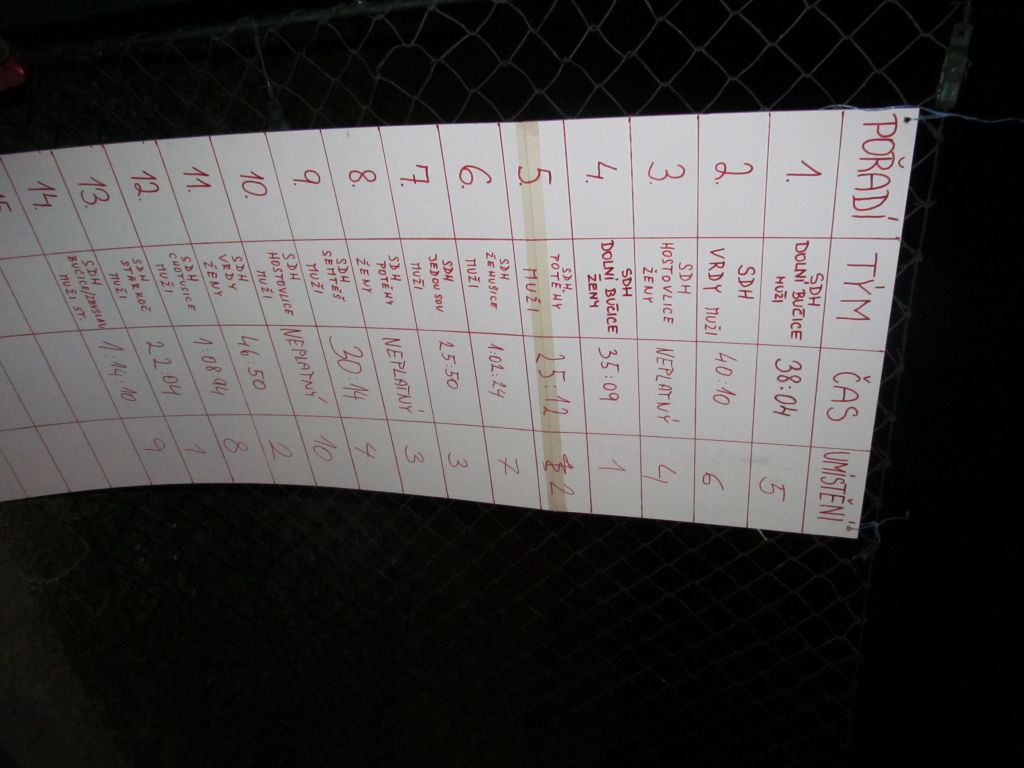 POŘADÍ TÝM ČAS UMÍSTĚNÍ
1. SDH DOLNÍ BUČICE MUŽI 38:04 5
2. SDH VRDY MUŽI 40:10 6
3. SDH HOSTOVLICE ŽENY NEPLATNÝ 4
4. SDH DOLNÍ BUČICE ŽENY 35:09 1
5. SDH POTĚHY MUŽI 25:12 2
6. SDH ŽEHUŠICE MUŽI 1:02:24 7
7. SDH JEDOUSOV MUŽI 25:50 3
8. SDH POTĚHY ŽENY NEPLATNÝ 3
9. SDH SEMTĚŠ MUŽI 30:14 4
10. SDH HOSTOVLICE MUŽI NEPLATNÝ 10
11. SDH VRDY ŽENY 46:50 2
12. SDH CHOTUSICE MUŽI 1:08:44 8
13. SDH STARKOČ MUŽI 22:04 1
14. SDH BUČICE/ZBYSLAV MUŽI ST. 1:14:10 9